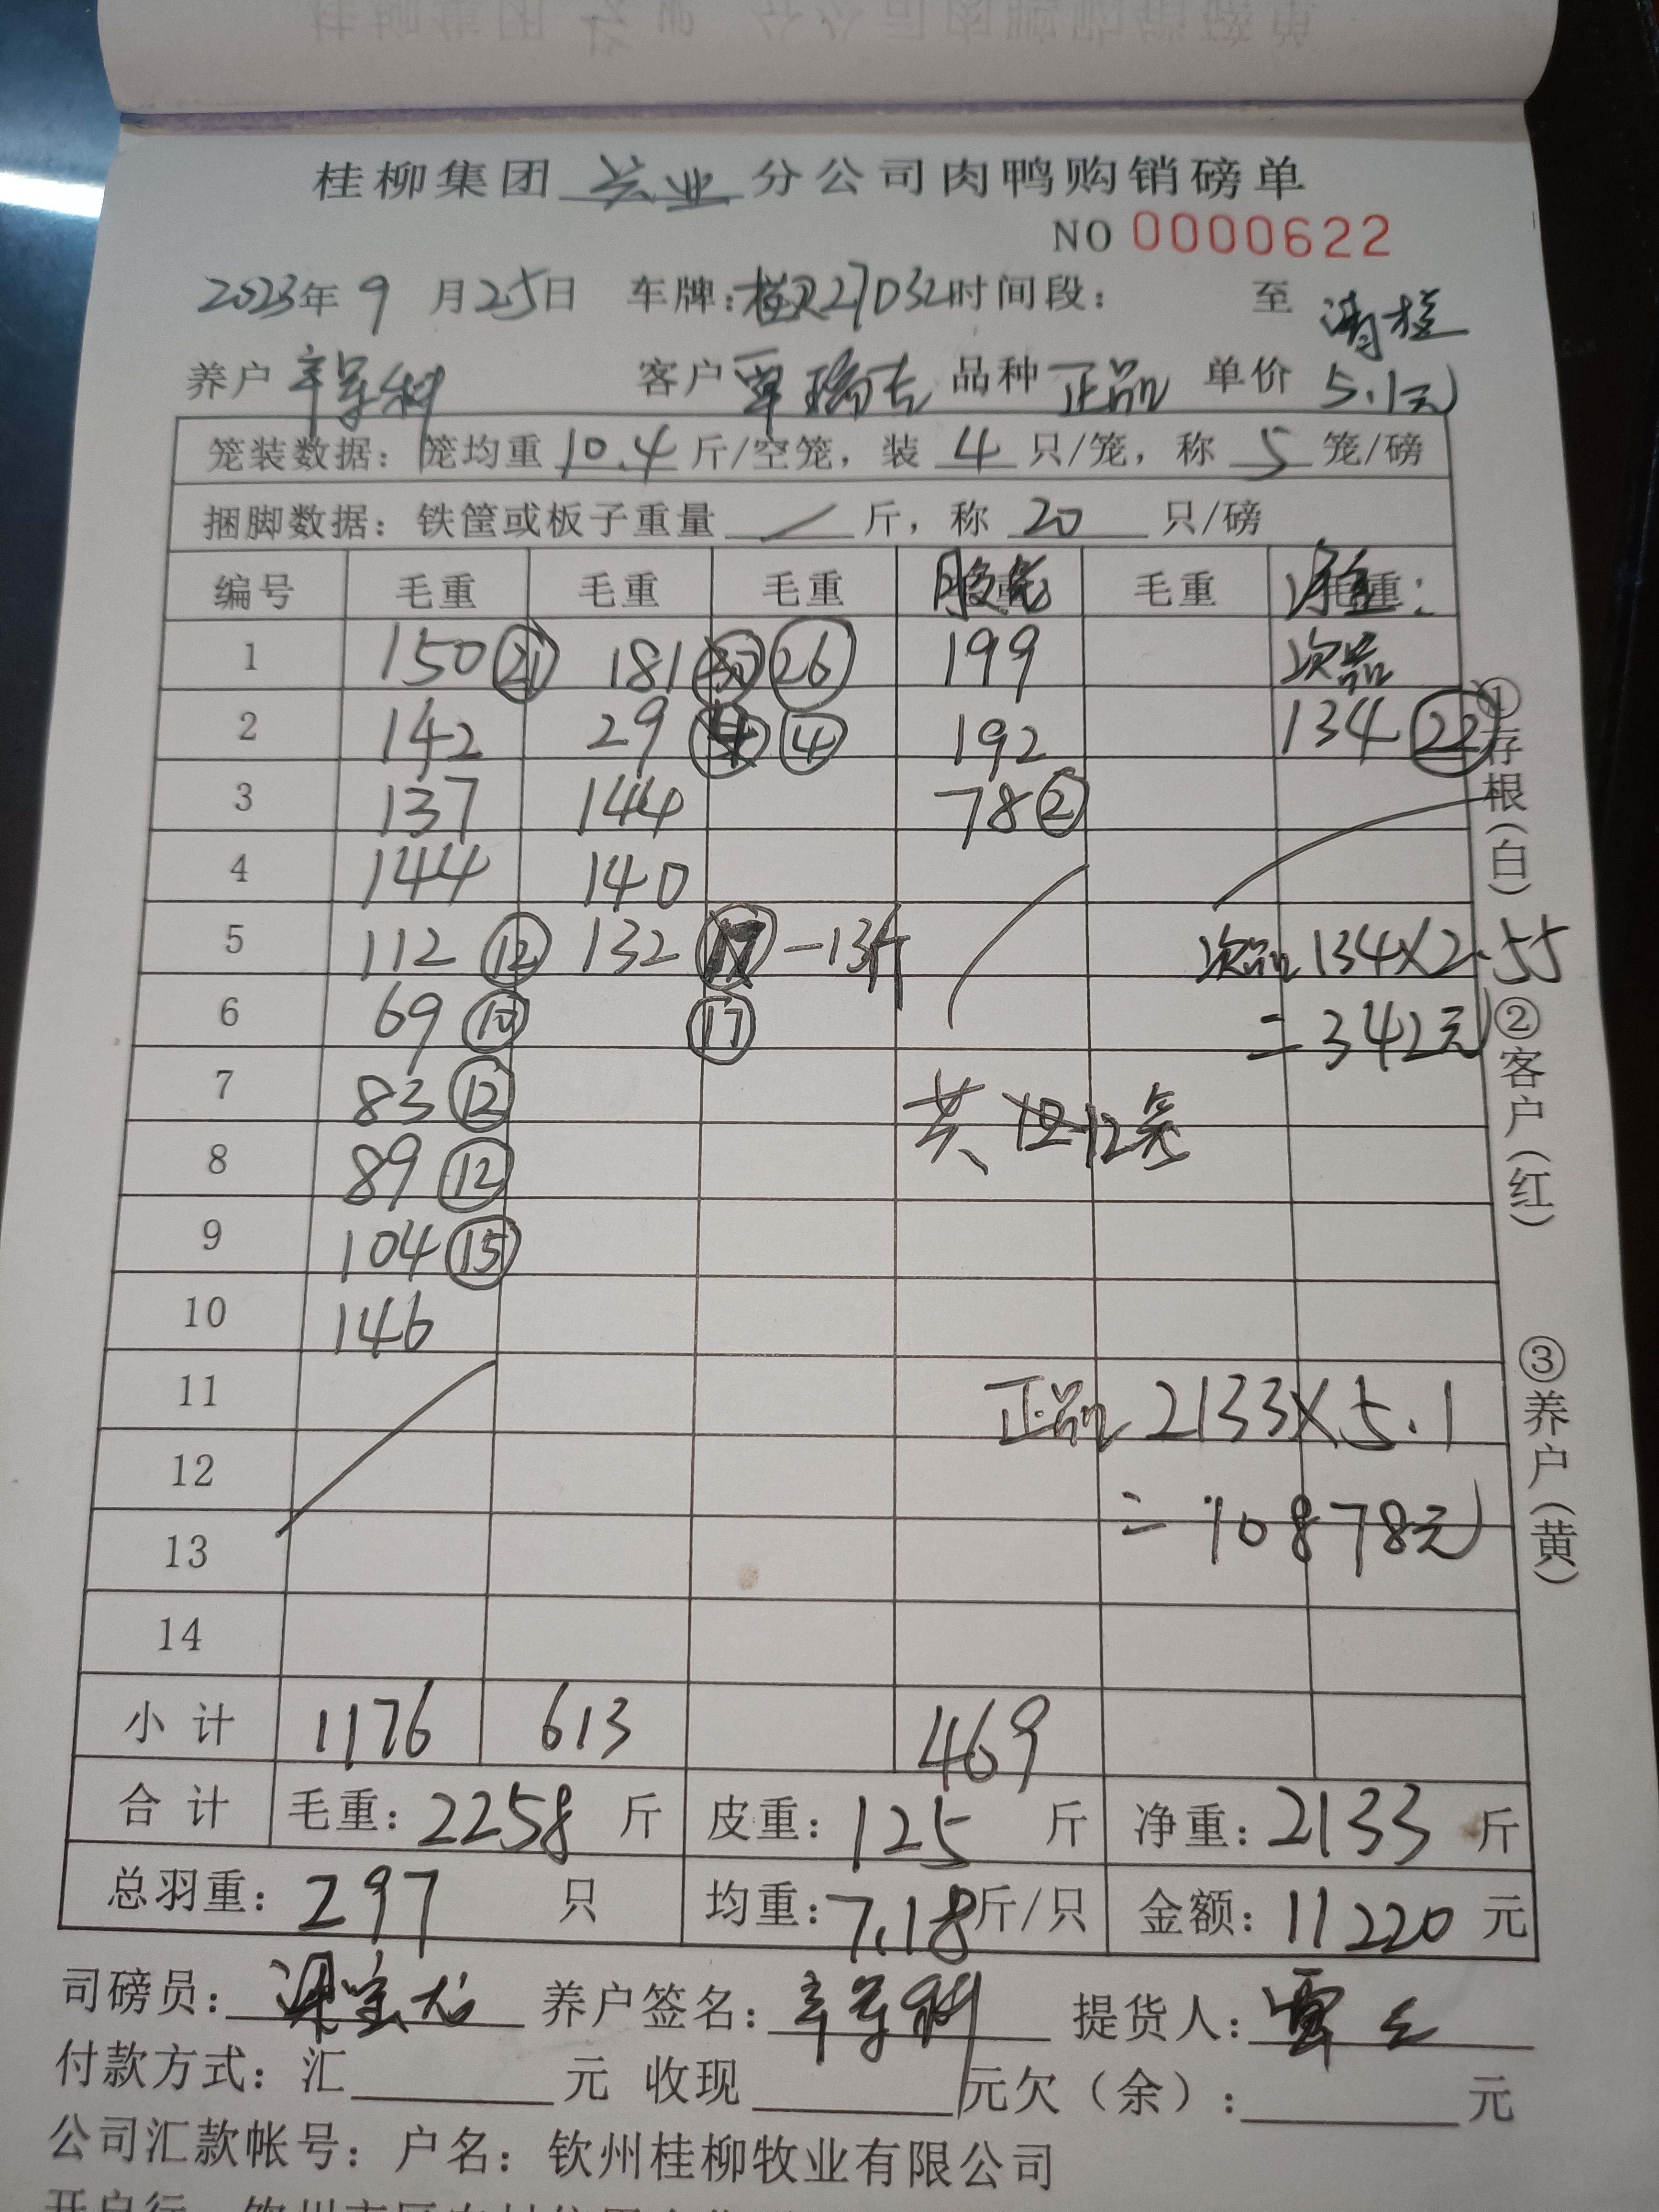 桂柳集团 兴业 分公司肉鸭购销磅单
NO 0000622
2023年 9 月25日 车牌:桂 27D32时间段: 至 清桂
养户 客户 覃瑞吉 品种 正品 单价 5.1元
笼装数据: 笼均重 10.4 斤/空笼, 装 4 只/笼, 称 5 笼/磅
捆脚数据: 铁筐或板子重量 / 斤, 称 20 只/磅
编号 毛重 毛重 毛重 毛重 毛重:
1 150 ㉑ 181 ㉖ 199 次品
2 142 29 ④ 192 134 ㉒
3 137 144 78 ②
4 144 140
5 112 ⑫ 132 -13斤 次品 134×2.55
6 69 ⑩ ⑰ =342元
7 83 ⑫ 共 12笼
8 89 ⑫
9 104 ⑮
10 146
11 正品 2133×5.1
12
13 =10878元
14
小 计 1176 613 469
合 计 毛重: 2258 斤 皮重: 125 斤 净重: 2133 斤
总羽重: 297 只 均重: 7.18 斤/只 金额: 11220 元
司磅员: 养户签名: 提货人: 覃
付款方式: 汇 元 收现 元欠(余): 元
公司汇款帐号: 户名: 钦州桂柳牧业有限公司
①存根(白) ②客户(红) ③养户(黄)